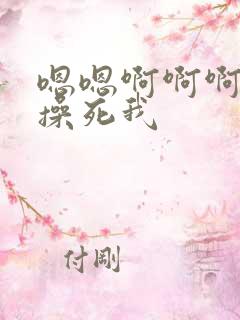 嗯嗯啊啊啊
操死我
付剛